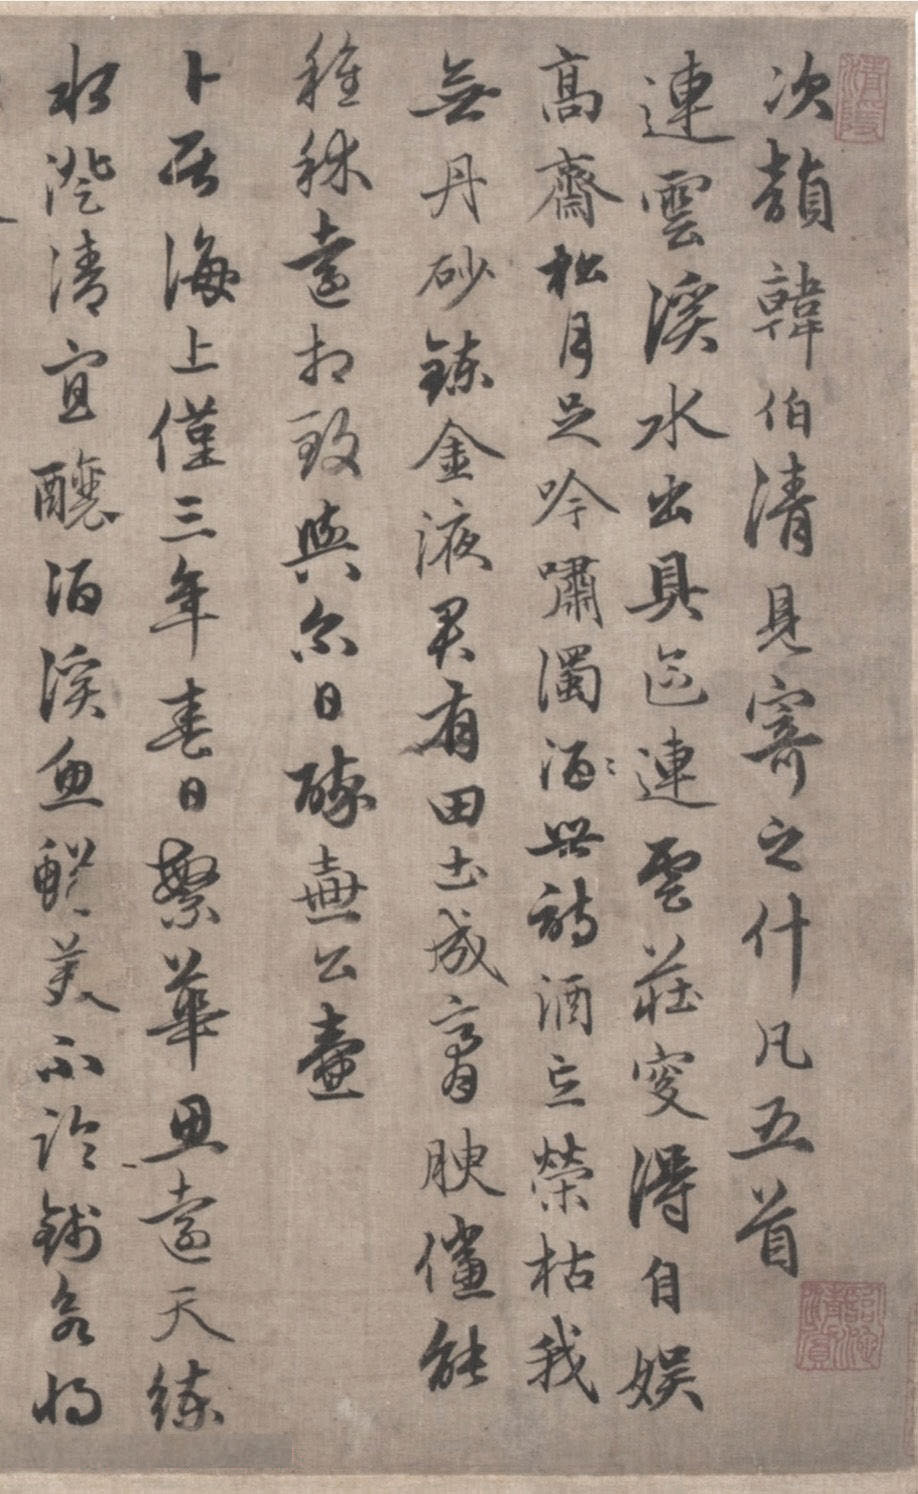 次韻韓伯清見寄之什凡五首
連雲溪水出具區連雲莊叟得自娛
高齋松月足吟嘯濁酒此詩酒忘榮枯我
無丹砂鍊金液君有田土成膏腴儻能
種秫遠相致與爾日醉壺公壺
卜居海上僅三年春日繁華思遠天練
水澄清宜釀酒溪魚鮮美不論錢客將